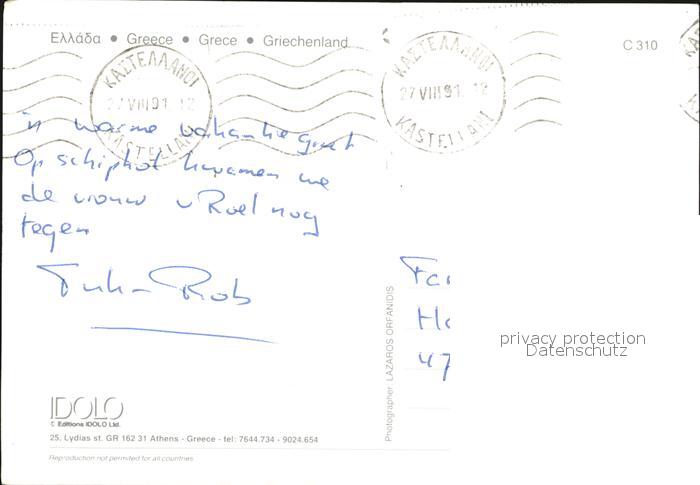 Ελλάδα • Greece • Grece • Griechenland
C 310
ΚΑΣΤΕΛΛΑΝΟΙ
27 VIII 91 12
KASTELLANI
ΚΑΣΤΕΛΛΑΝΟΙ
27 VIII 91 12
KASTELLANI
'n warme vakantiegroet
Op schiphol kwamen we
de vrouw v Roel nog
tegen
Rob
Fa
H
47
privacy protection
Datenschutz
Photographer LAZAROS ORFANIDIS
IDOLO
© Editions IDOLO Ltd.
25, Lydias st. GR 162 31 Athens - Greece - tel: 7644.734 - 9024.654
Reproduction not permited for all countries